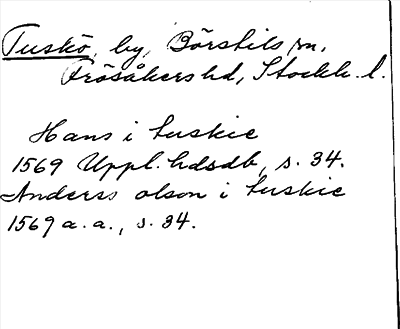 Tuskö, by, Börstils sn,
Frösåkers hd, Stockh. l.
Hans i tuskie
1569 Uppl. hdsdb, s. 34.
Anderss olson i tuskie
1569 a. a., s. 34.